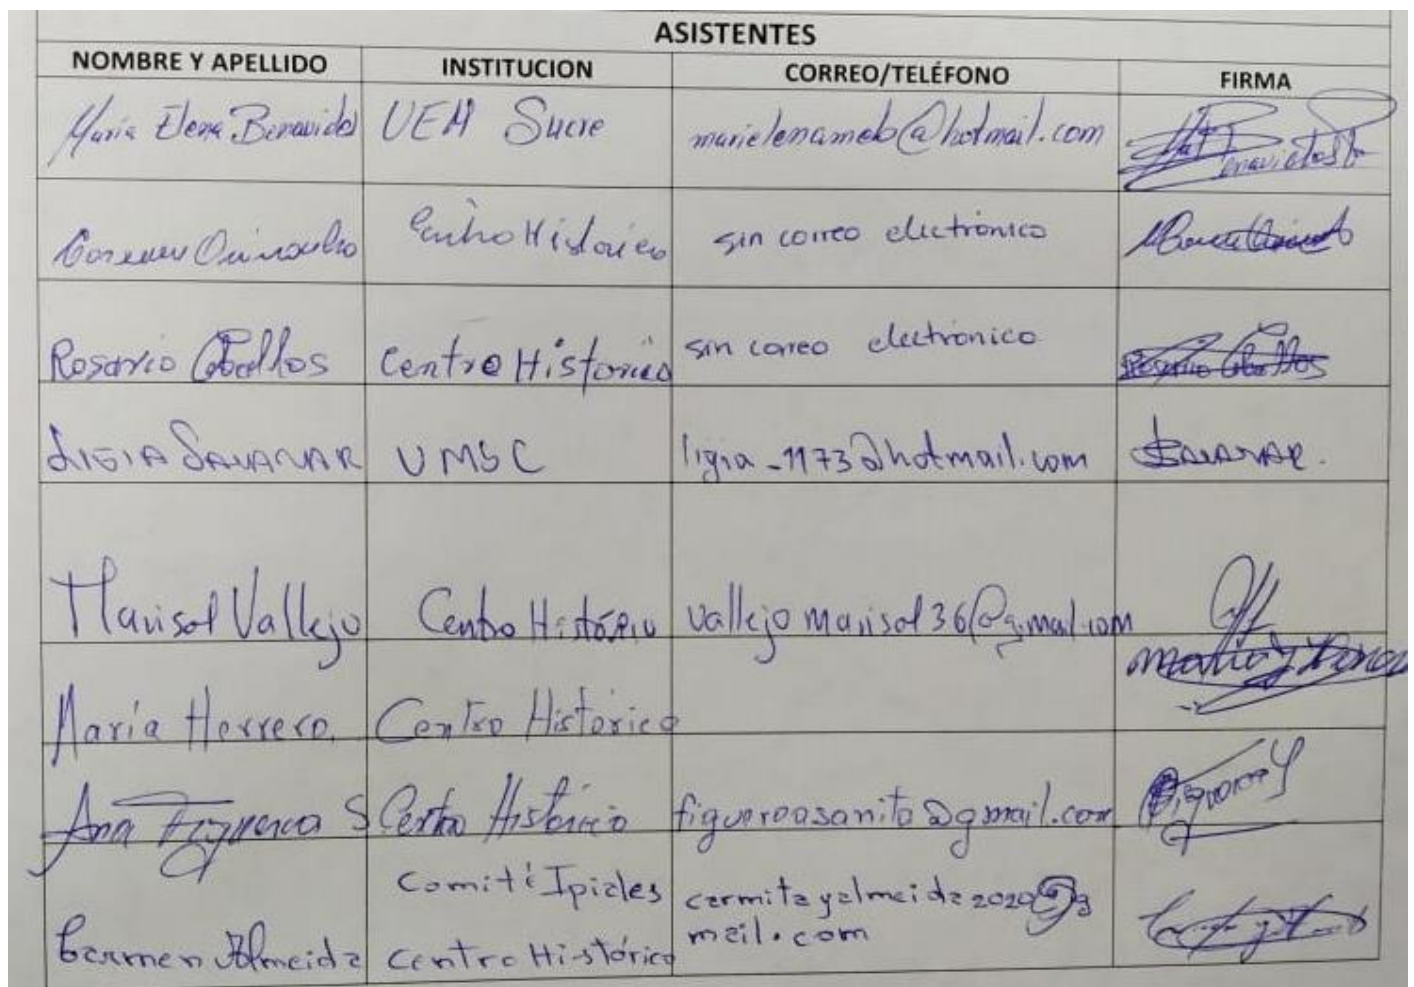 ASISTENTES
NOMBRE Y APELLIDO INSTITUCION CORREO/TELÉFONO FIRMA
María Elena Benavides UEM Sucre marielenameb@hotmail.com
Centro Histórico sin correo electrónico
Rosario Ceballos Centro Historico sin correo electrónico Rosario Ceballos
LIGIA SALAZAR UMSC ligia_1973@hotmail.com SALAZAR.
Marisol Vallejo Centro Histórico vallejomarisol36@gmail.com
María Herrera Centro Historico
Ana Figueroa S Centro Histórico figueroasanita@gmail.com Figueroa
Comité Ipiales carmitayalmeida2020@g
Carmen Almeida Centro Histórico mail.com